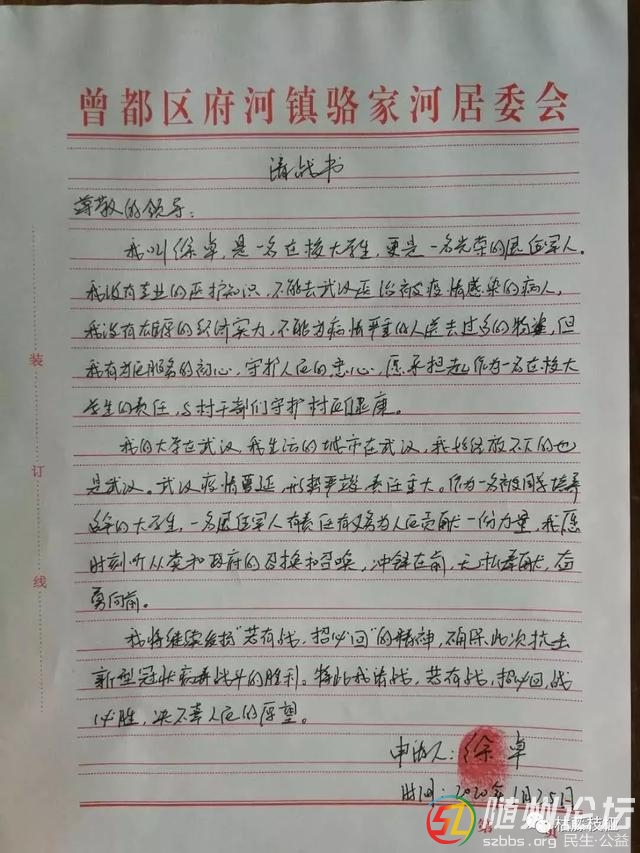 曾都区府河镇骆家河居委会
请战书
尊敬的领导：
我叫徐卓，是一名在校大学生，更是一名光荣的退伍军人。
我没有专业的医护知识，不能去武汉医治被疫情感染的病人，
我没有雄厚的经济实力，不能为病情严重的人送去过多的物资，但
我有为民服务的初心，守护人民的忠心，愿承担起作为一名在校大
学生的责任，与村干部们守护村民健康。
我的大学在武汉，我生活的城市在武汉，我始终放不下的也
是武汉。武汉疫情蔓延，形势严峻，责任重大。作为一名被国家培养
多年的大学生，一名退伍军人有责任有义务为人民贡献一份力量，我愿
时刻听从党和政府的召换和召唤，冲锋在前，无私奉献，奋
勇向前。
我将继续发扬"若有战，招必回"的精神，确保此次抗击
新型冠状病毒战斗的胜利。特此我请战，若有战，招必回，战
必胜，决不辜人民的厚望。
申请人：徐卓
时间：2020年1月25日
装
订
线
第
随州论坛
szbbs.org 民生·公益
枯藤枝桠